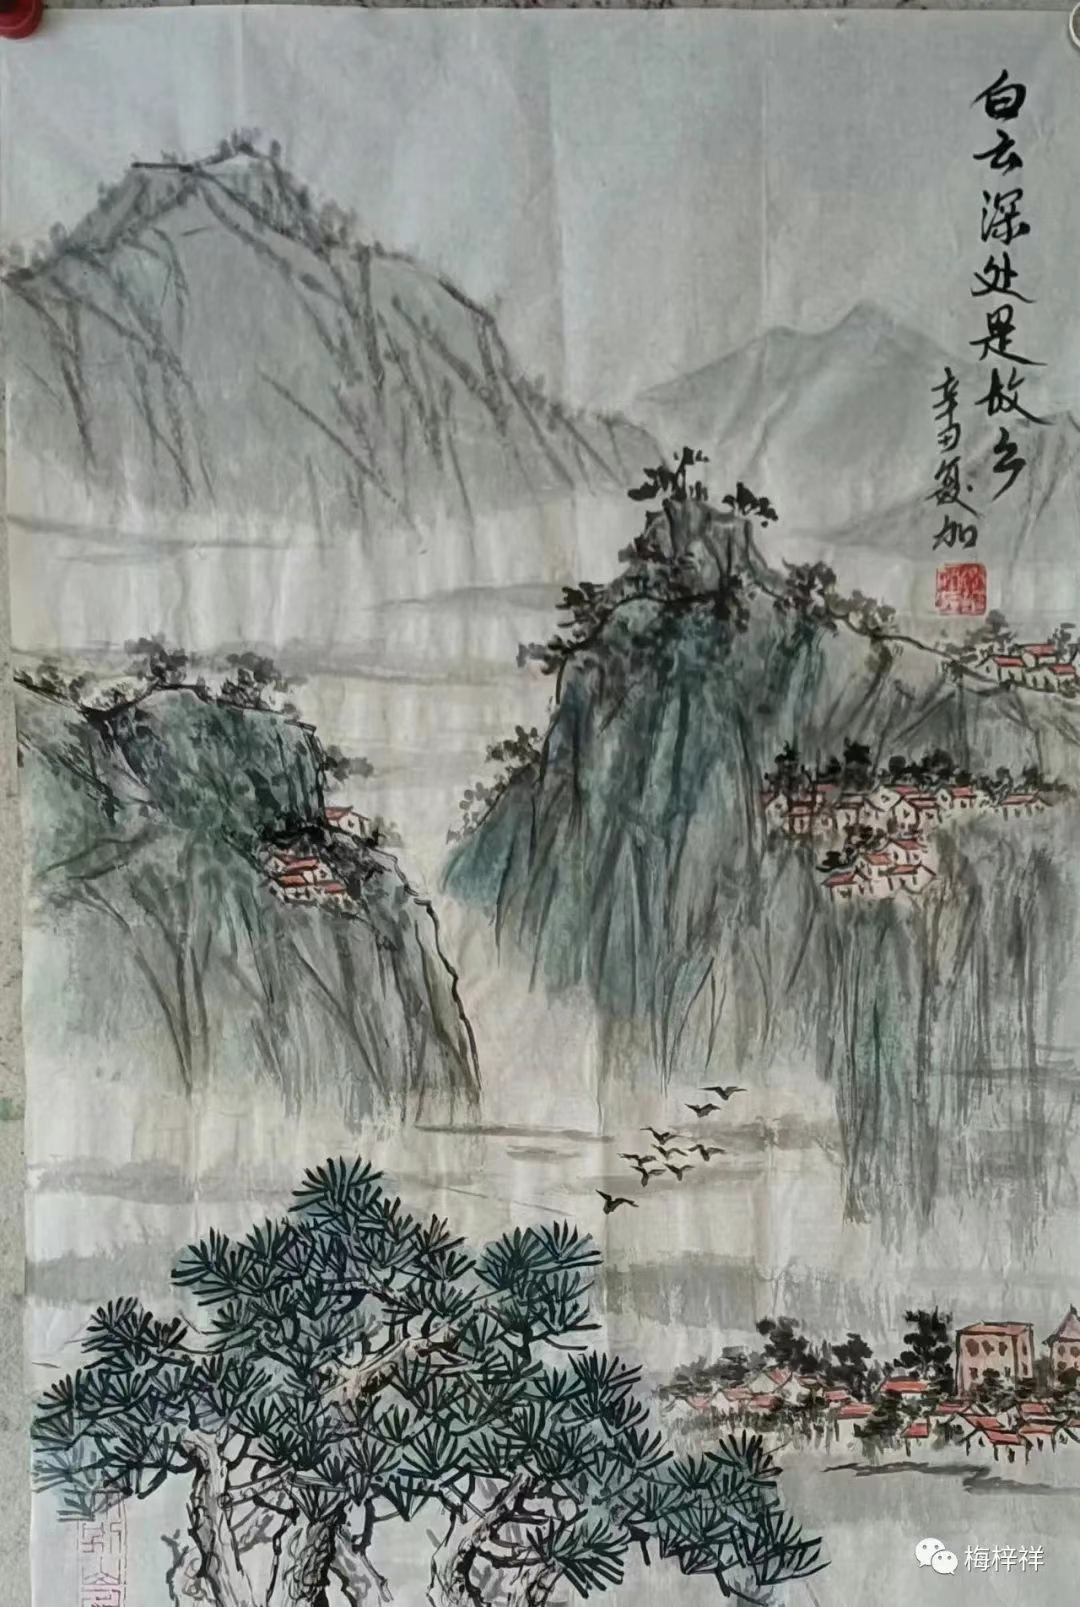 白云深处是故乡
辛丑复加
梅梓祥